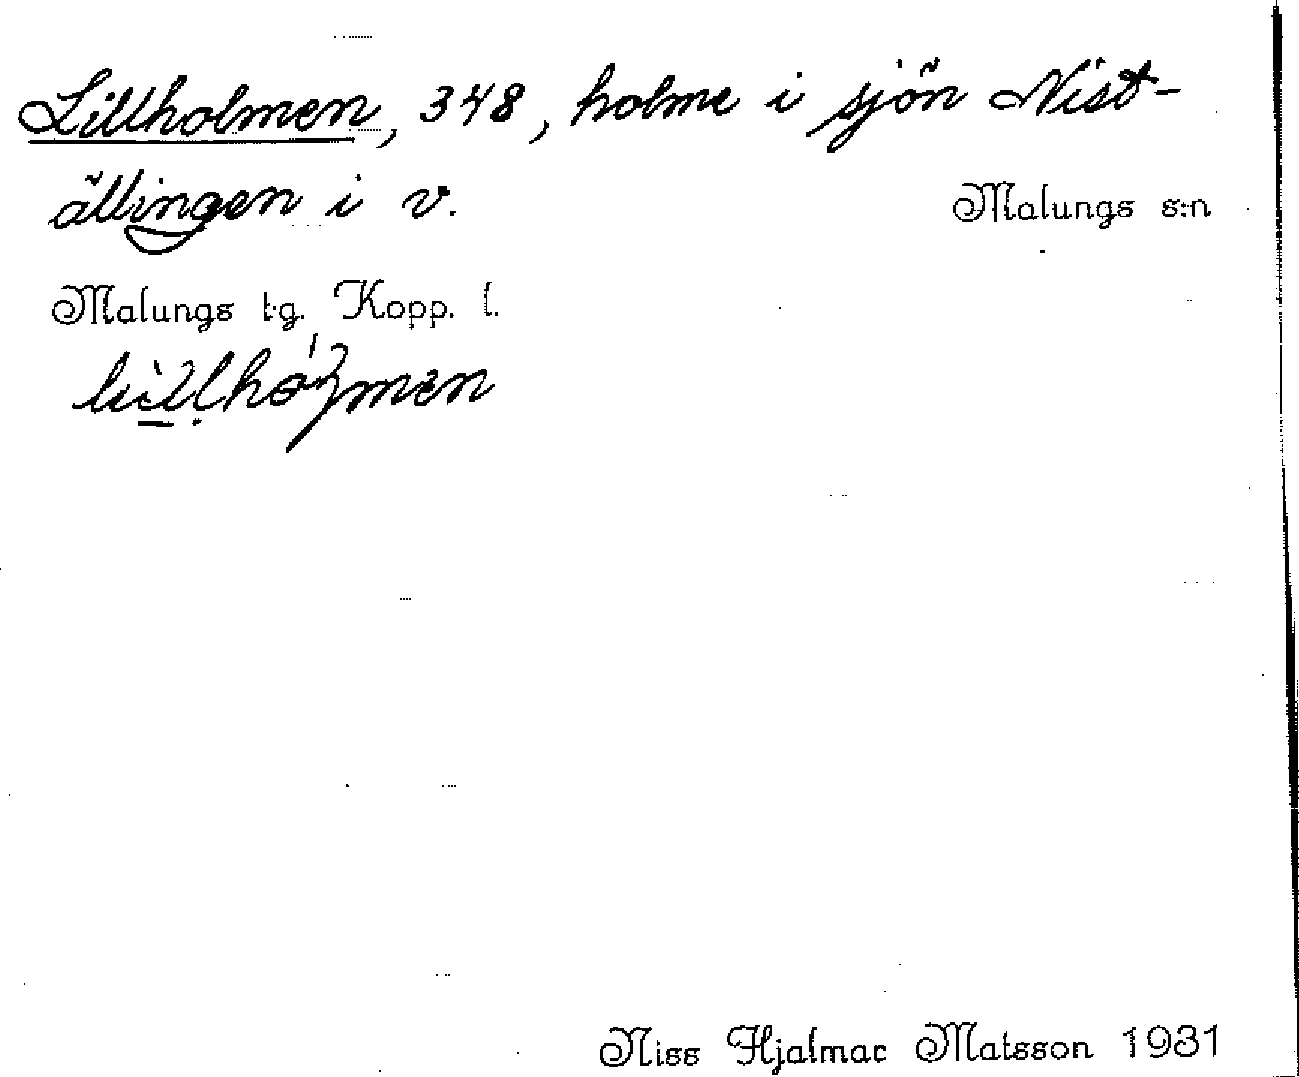 Lillholmen, 348, holme i sjön Nist-
ällingen i v.
Malungs s:n
Malungs t.g. Kopp. l.
lillhólmen
Niss Hjalmar Matsson 1931